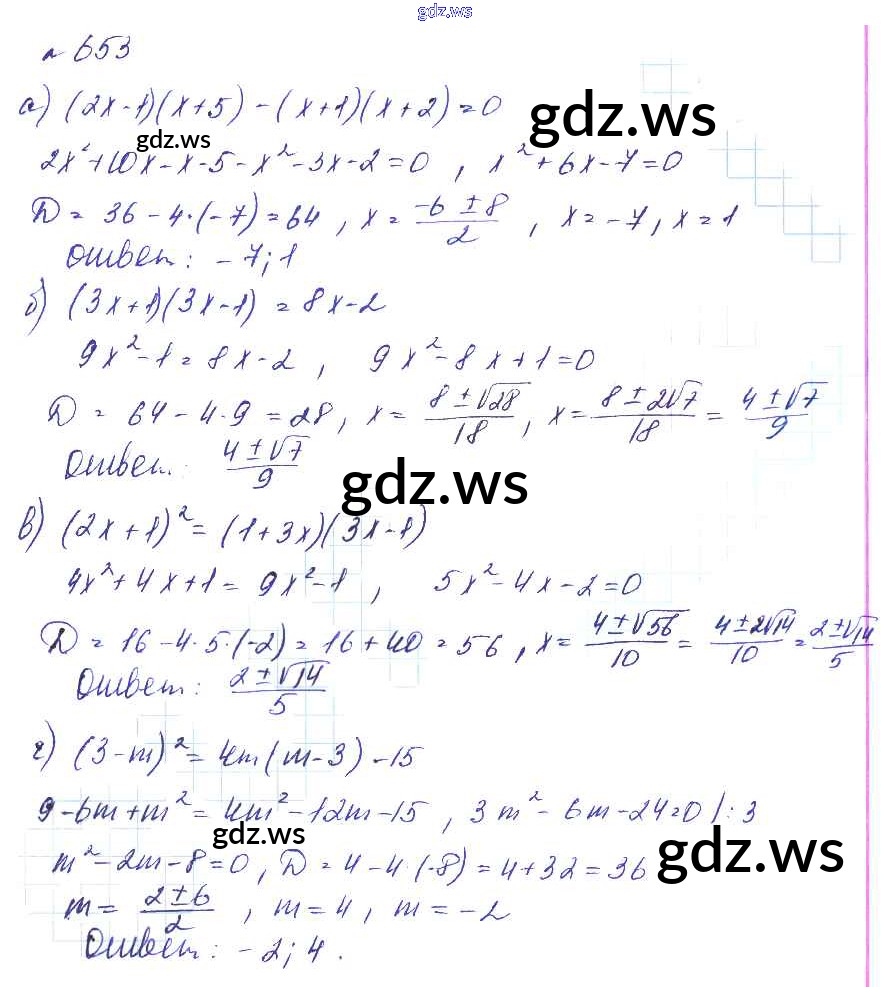 gdz.ws
№ 653
а) (2x-1)(x+5) - (x+1)(x+2) = 0
gdz.ws
gdz.ws
2x²+10x-x-5-x²-3x-2=0 , x²+6x-7=0
D = 36-4·(-7)=64 , x = (-6±8)/2 , x=-7, x=1
Ответ: -7; 1
б) (3x+1)(3x-1) = 8x-2
9x²-1=8x-2 , 9x²-8x+1=0
D = 64-4·9=28, x= (8±√28)/18 , x= (8±2√7)/18 = (4±√7)/9
Ответ: (4±√7)/9
gdz.ws
в) (2x+1)²=(1+3x)(3x-1)
4x²+4x+1= 9x²-1 , 5x²-4x-2=0
D = 16-4·5·(-2)=16+40=56 , x= (4±√56)/10 = (4±2√14)/10 = (2±√14)/5
Ответ: (2±√14)/5
г) (3-m)²=4m(m-3)-15
9-6m+m²=4m²-12m-15 , 3m²-6m-24=0 |:3
gdz.ws
gdz.ws
m²-2m-8=0, D = 4-4·(-8)=4+32=36
m= (2±6)/2 , m=4, m=-2
Ответ: -2; 4.